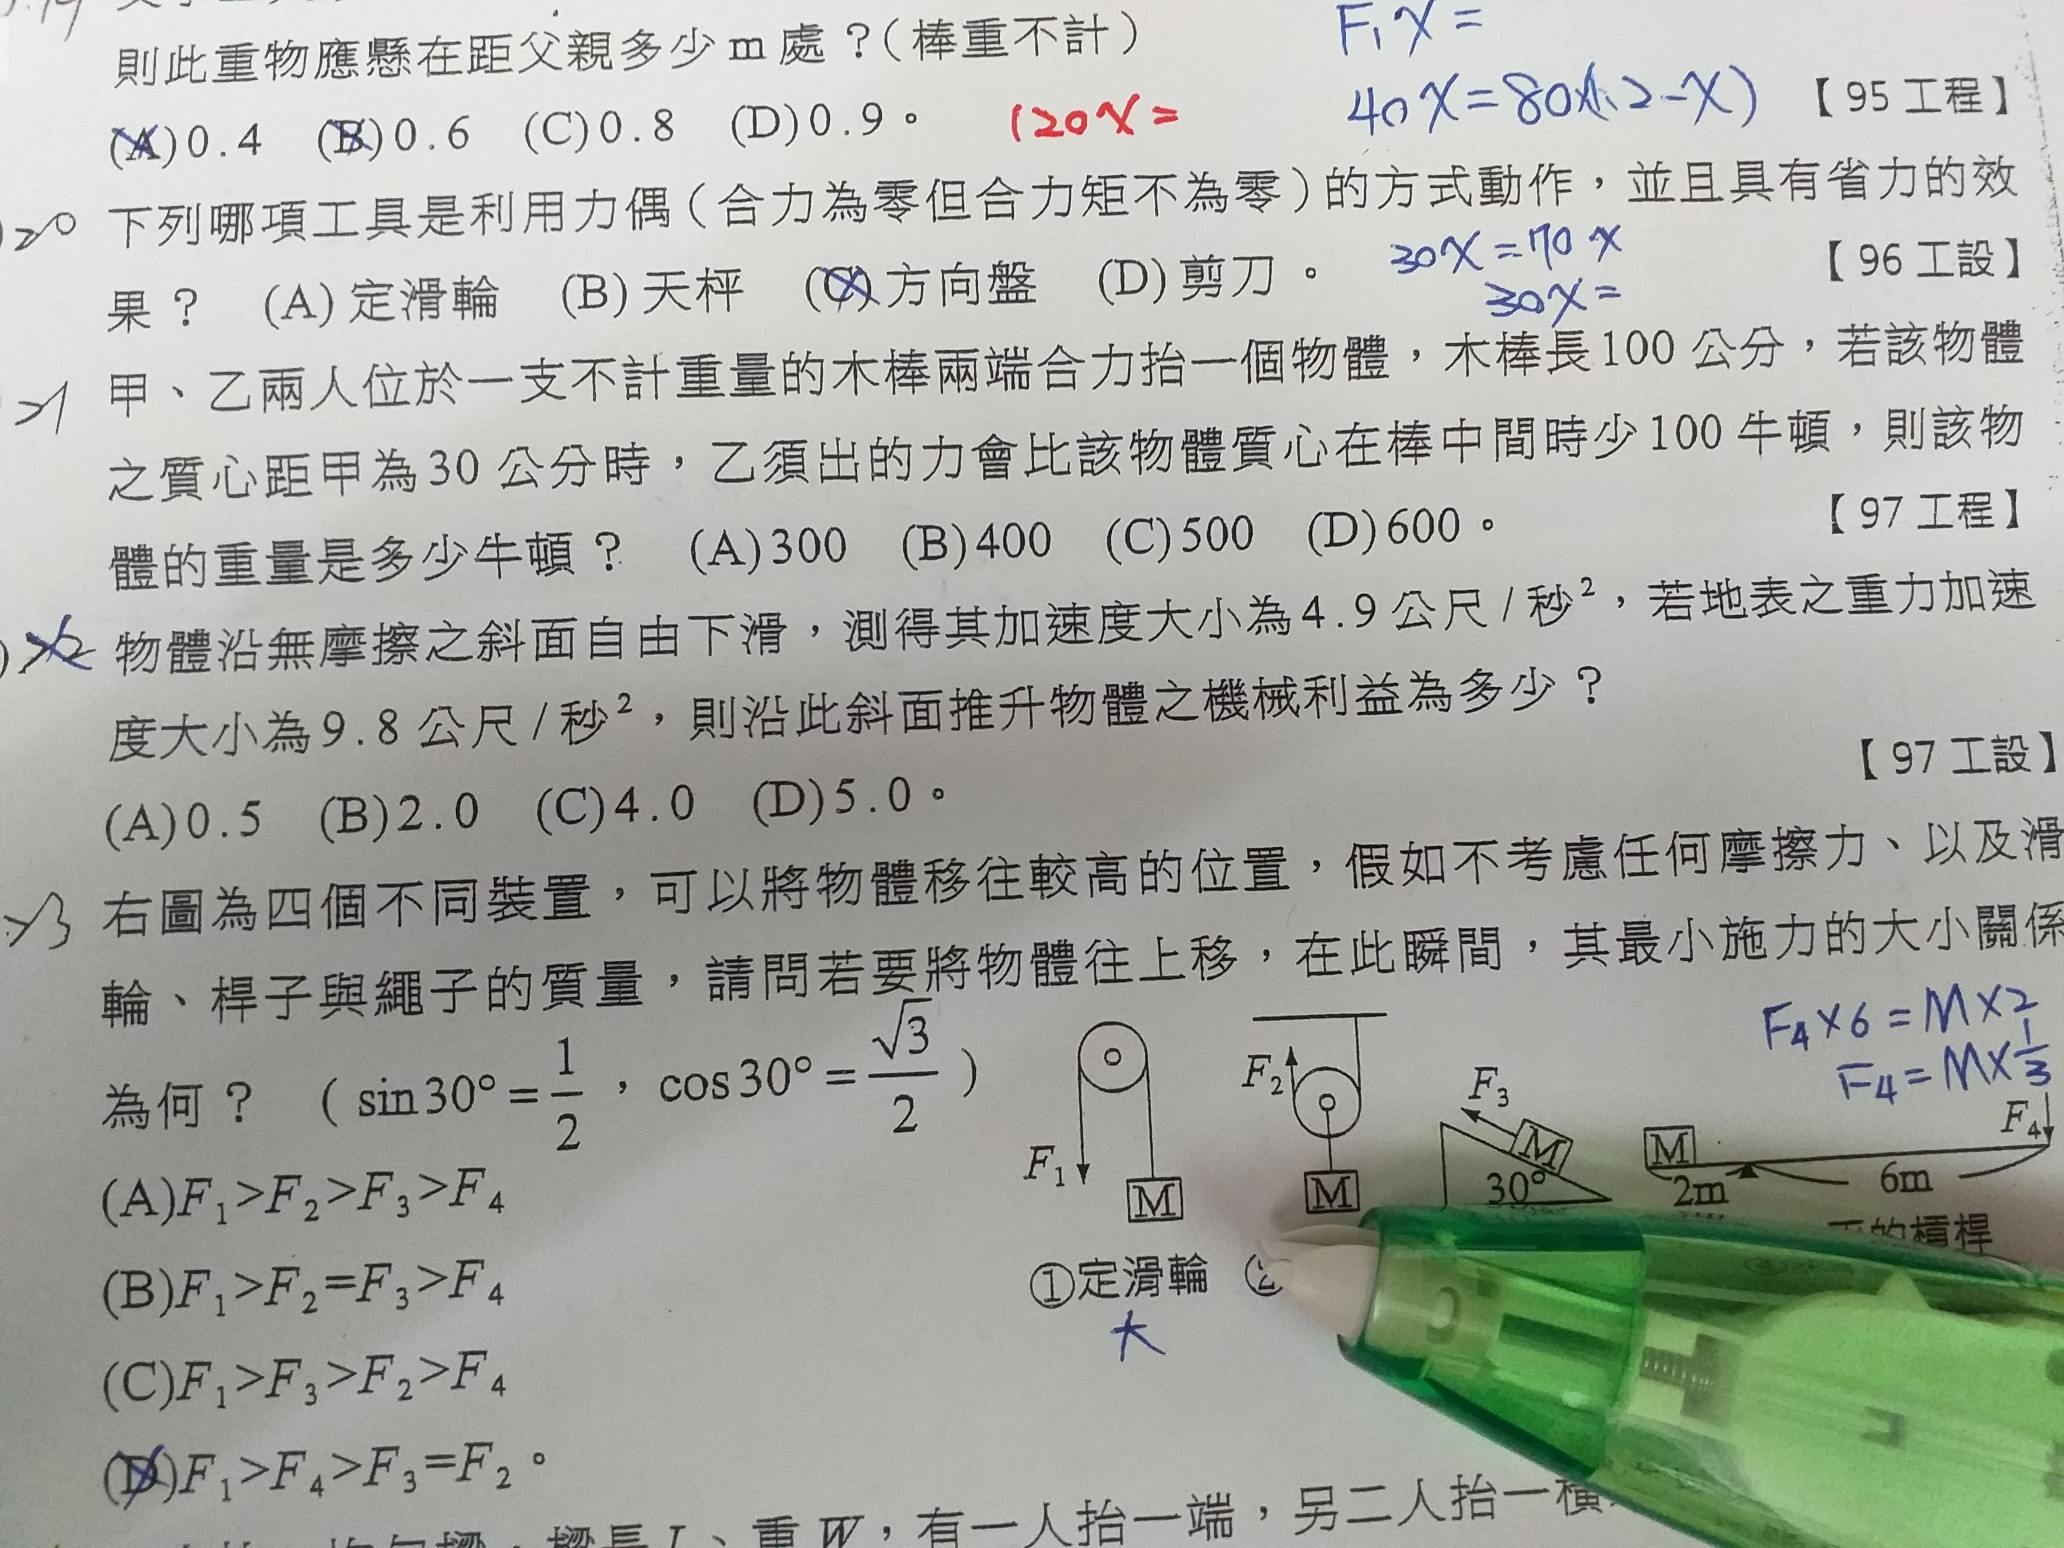 則此重物應懸在距父親多少m處？(棒重不計)
F₁X=
40X=80X(1.2-X)
【95工程】
(A)0.4 (B)0.6 (C)0.8 (D)0.9。
120X=
20 下列哪項工具是利用力偶(合力為零但合力矩不為零)的方式動作，並且具有省力的效
果？ (A)定滑輪 (B)天枰 (C)方向盤 (D)剪刀。
【96工設】
30X=70X
30X=
21 甲、乙兩人位於一支不計重量的木棒兩端合力抬一個物體，木棒長100公分，若該物體
之質心距甲為30公分時，乙須出的力會比該物體質心在棒中間時少100牛頓，則該物
體的重量是多少牛頓？ (A)300 (B)400 (C)500 (D)600。
【97工程】
物體沿無摩擦之斜面自由下滑，測得其加速度大小為4.9公尺/秒²，若地表之重力加速
度大小為9.8公尺/秒²，則沿此斜面推升物體之機械利益為多少？
【97工設】
(A)0.5 (B)2.0 (C)4.0 (D)5.0。
23 右圖為四個不同裝置，可以將物體移往較高的位置，假如不考慮任何摩擦力、以及滑
輪、桿子與繩子的質量，請問若要將物體往上移，在此瞬間，其最小施力的大小關係
為何？ (sin30°=1/2，cos30°=√3/2)
F₄X6=MX2
F₄=MX1/3
F₁ M
F₂ M
F₃ M 30°
M 2m 6m F₄
①定滑輪 ②
的槓桿
大
(A)F₁>F₂>F₃>F₄
(B)F₁>F₂=F₃>F₄
(C)F₁>F₃>F₂>F₄
(D)F₁>F₄>F₃=F₂。
重W，有一人抬一端，另二人抬一橫